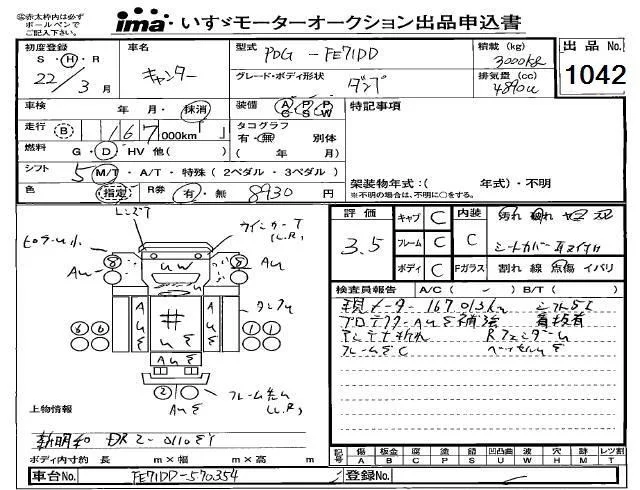 ※赤太枠内は必ず
ボールペンで
ご記入下さい。
ima・いすゞモーターオークション出品申込書
初度登録
S・H・R
22/3月
車名
キャンター
型式
PDG-FE71DD
グレード・ボディ形状
ダンプ
積載 (kg)
3000kg
排気量 (cc)
4890cc
出品 No.
1042
車検
年 月・抹消
装備
A/C P/S P/W
特記事項
走行 B 167 000km
タコグラフ
有・無 別体
( 年 月)
燃料
G・D HV 他( )
シフト
5 M/T・A/T・特殊(2ペダル・3ペダル)
色
指定
R券
有・無 8930円
架装物年式:( 年式)・不明
※不明の場合は不明に○をする。
評価
3.5
キャブ C
フレーム C
ボディ C
内装
C
Fガラス
汚れ 破れ ヤニ スレ
シートカバー
割れ 線 点傷 イバリ
検査員報告 A/C( ) B/T( )
現メーター 167013km シフト5
プロテクターAUΣ補強 看板有
アンテナ折れ Rフェンダー
フレームΣC
レンズワ
ウインカーワ
(L.R)
ヒロラーUホ
AU
UW
AU
タンクU
A U Σ
#
A U Σ
AUΣ
6 6
1 1
2
AUΣ
フレーム先U
(L.R)
上物情報
新明和 DR2-0110SY
ボディ内寸約 長 m×幅 m×高 m
記号
傷 板金 腐 塗 錆 凹凸曲 波 穴 跡 レツ割
A B C P S U W H M T
車台No.
FE71DD-570354
登録No.